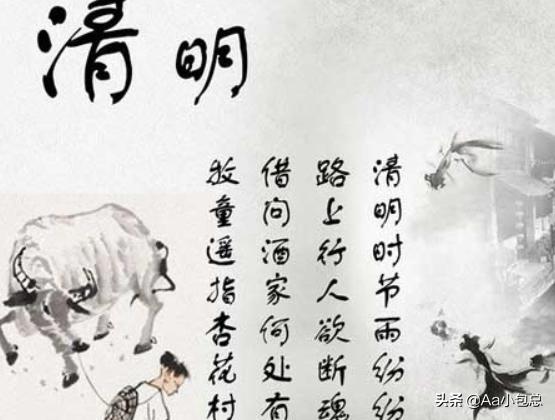 清明
清明时节雨纷纷
路上行人欲断魂
借问酒家何处有
牧童遥指杏花村
头条 @Aa小包总